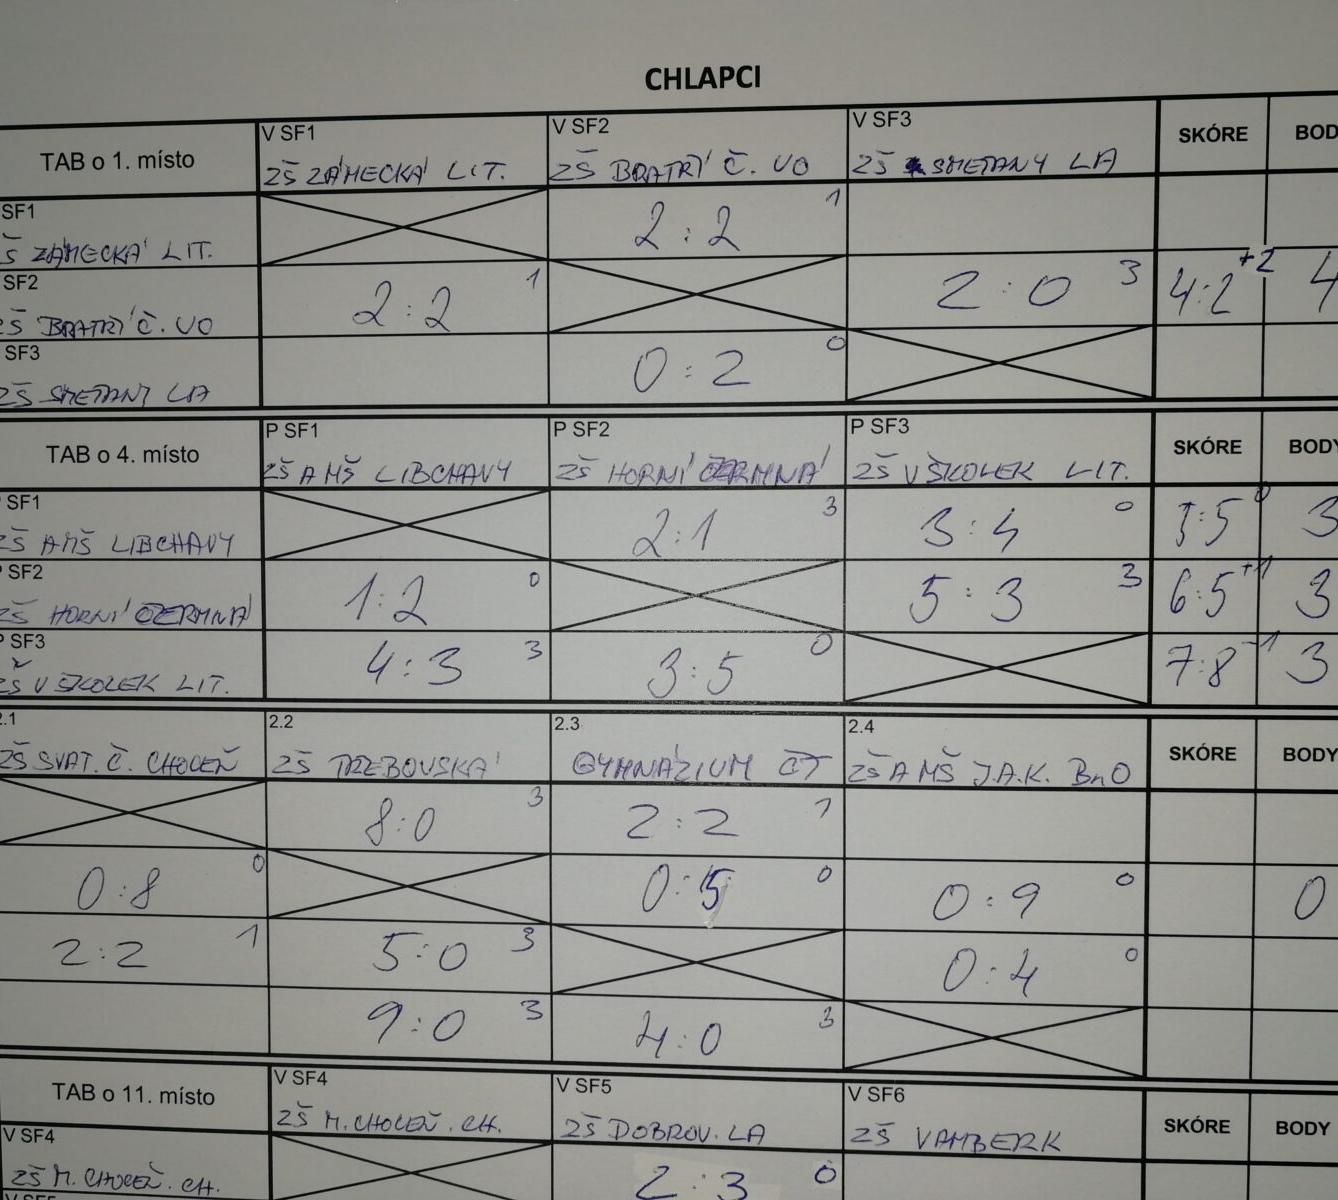 CHLAPCI
TAB o 1. místo V SF1 V SF2 V SF3 SKÓRE BOD
ZŠ ZÁMECKÁ LIT. ZŠ BRATŘÍ Č. VO ZŠ SMETANY LA
SF1 2:2 1
Š ZÁMECKÁ LIT.
SF2 2:2 1 2:0 3 4:2 +2 4
ZŠ BRATŘÍ Č. VO
SF3 0:2 0
ZŠ SMETANY LA
TAB o 4. místo P SF1 P SF2 P SF3 SKÓRE BODY
ZŠ A MŠ LIBCHAVY ZŠ HORNÍ ČERMNÁ ZŠ V ŠKOLEK LIT.
SF1 2:1 3 3:4 0 5:5 0 3
ZŠ A MŠ LIBCHAVY
P SF2 1:2 0 5:3 3 6:5 +1 3
ZŠ HORNÍ ČERMNÁ
P SF3 4:3 3 3:5 0 7:8 -1 3
ZŠ V ŠKOLEK LIT.
2.1 2.2 2.3 2.4 SKÓRE BODY
ZŠ SVAT. Č. CHOCEŇ ZŠ TŘEBOVSKÁ GYMNÁZIUM ČT ZŠ A MŠ J.A.K. BnO
8:0 3 2:2 1
0:8 0 0:5 0 0:9 0 0
2:2 1 5:0 3 0:4 0
9:0 3 4:0 3
TAB o 11. místo V SF4 V SF5 V SF6 SKÓRE BODY
ZŠ M. CHOCEŇ. CH. ZŠ DOBROV. LA ZŠ VAMBERK
V SF4 2:3 0
ZŠ M. CHOCEŇ. CH.
V SF5